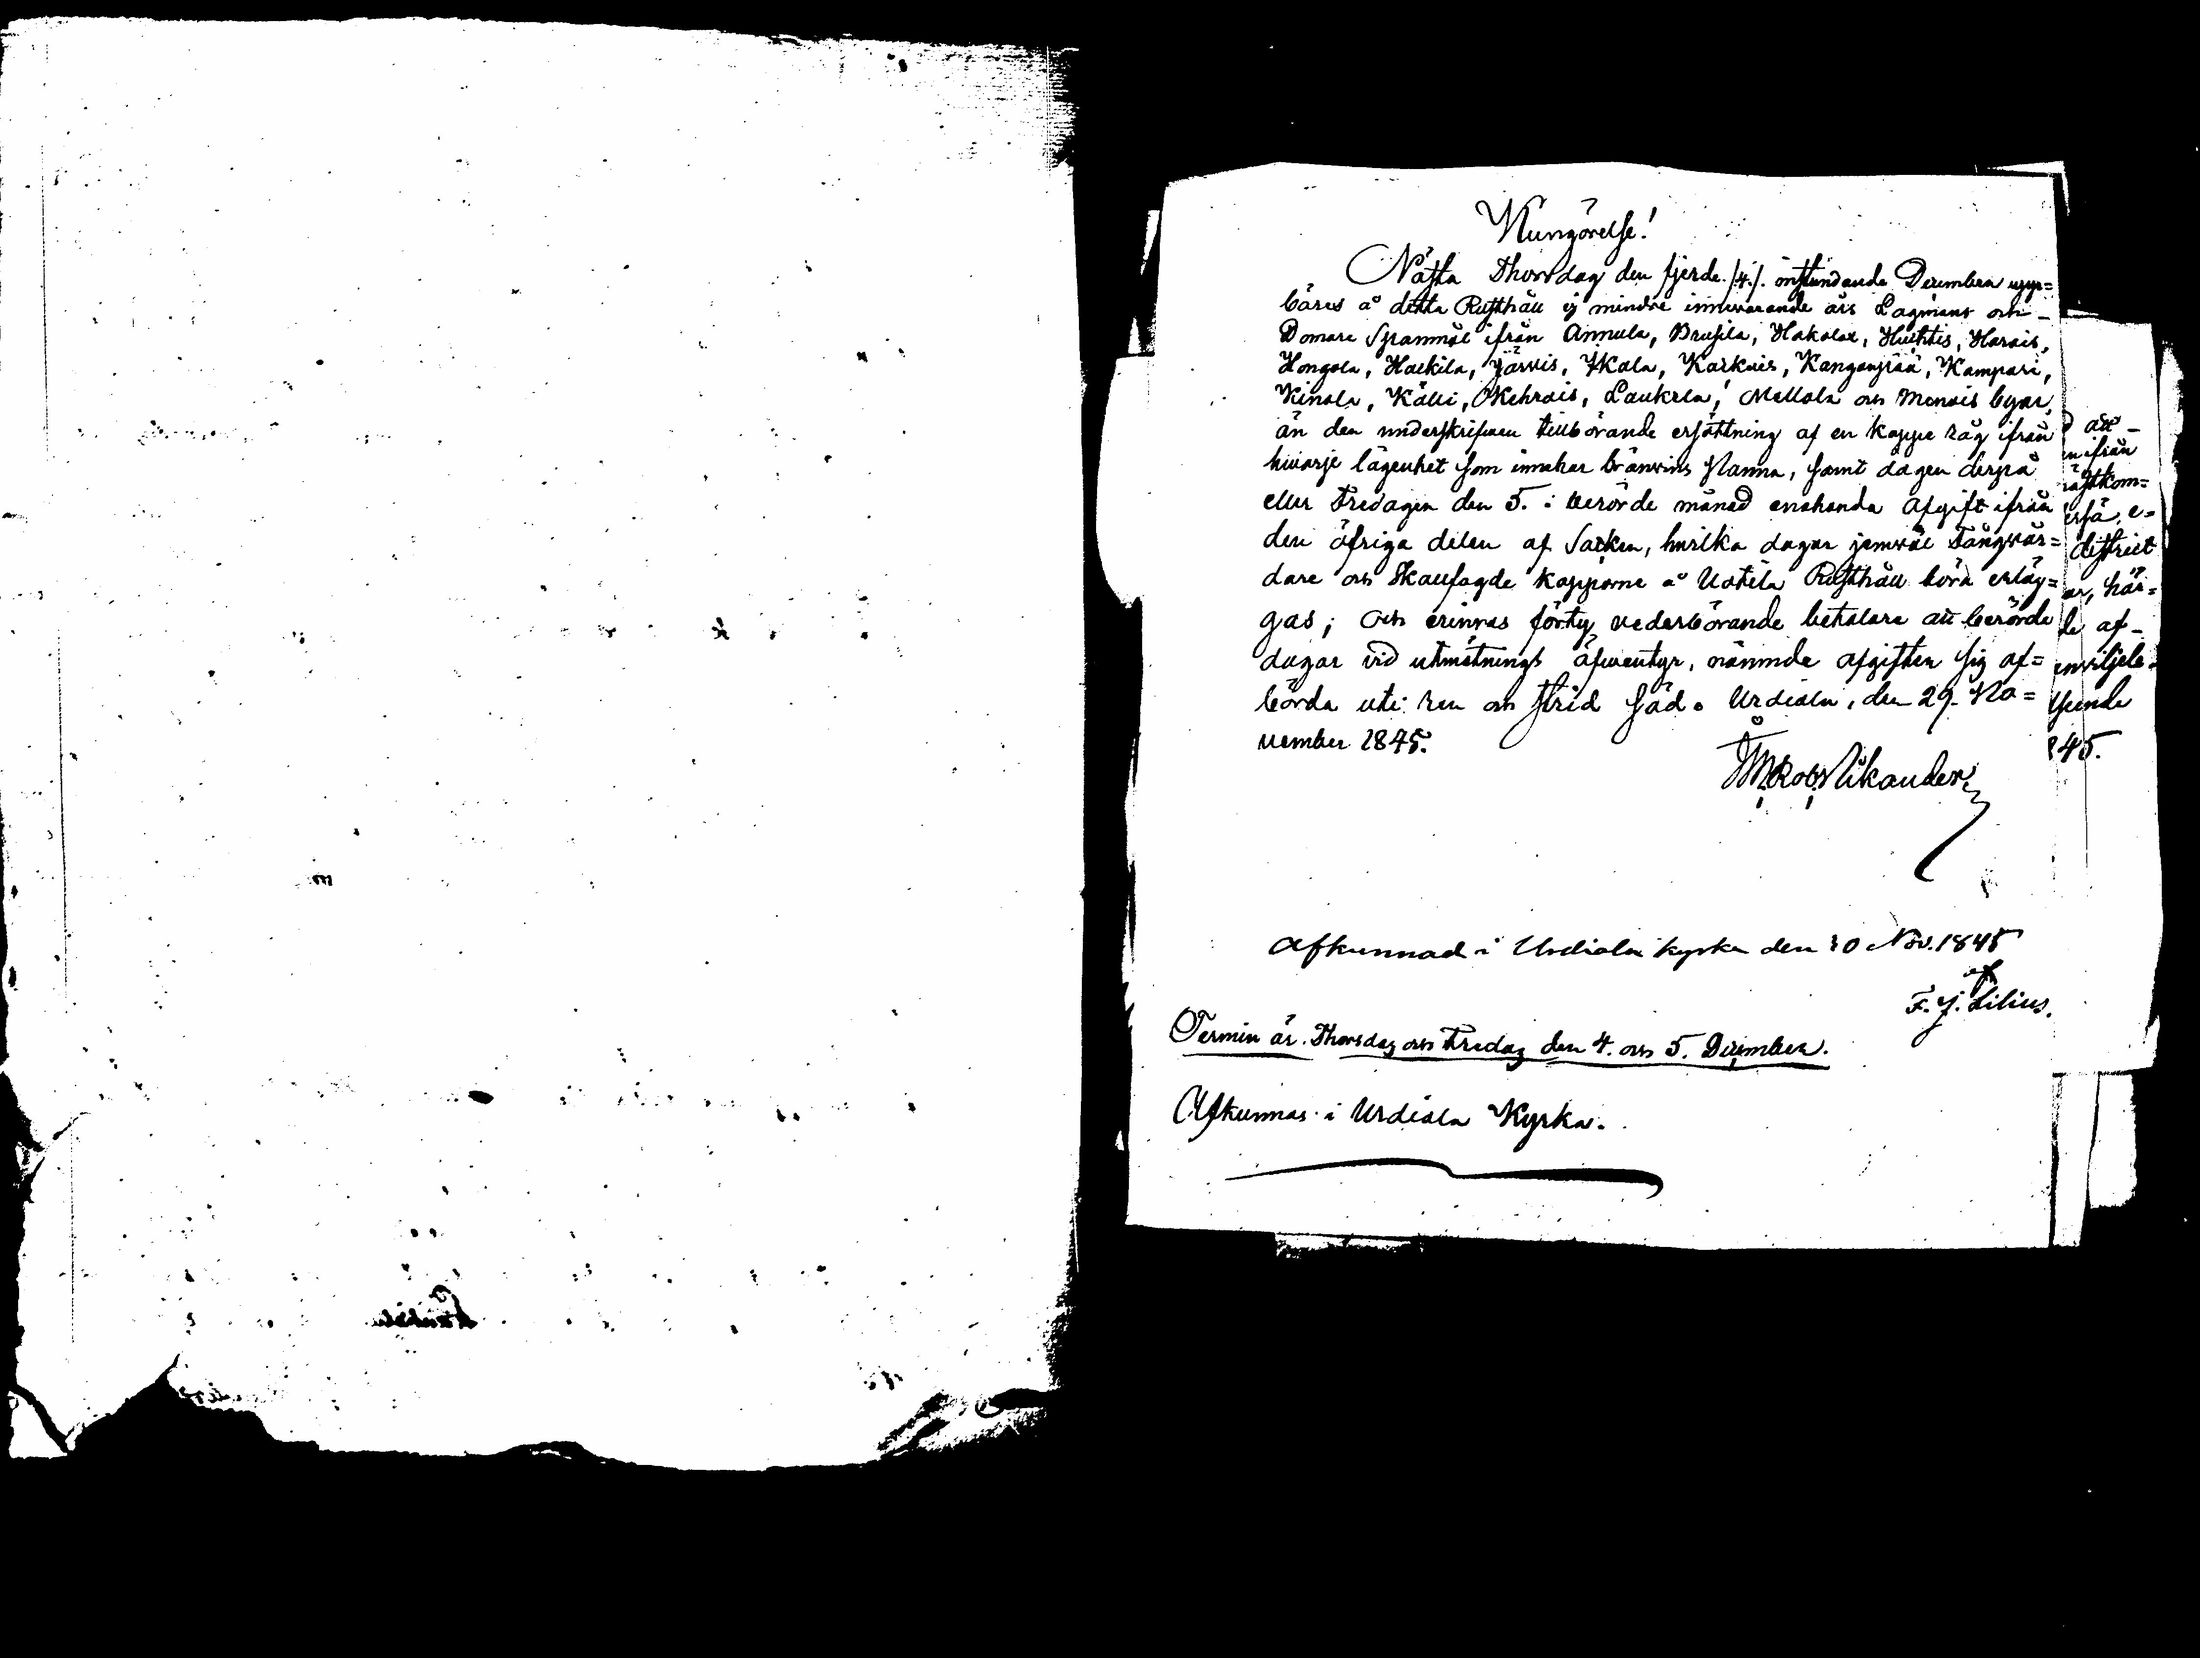 Kungörelse!
Nästa Thorsdag den fjerde /:4:/. instundande December upp=
båres å detta Rusthåll ej mindre innevarande års Lagmans och
Domare Spannmål ifrån Annula, Brusila, Hakolax, Huhtis, Harais,
Hongola, Hackila, Järvis, Ikala, Karknis, Kanganpää, Kampari,
Kinala, Källi, Kehrois, Laukela, Mellola och Menois byar,
än den underskrifwen tillbörande ersättning af en kappe råg ifrån
hwarje lägenhet som innehar bränwins Panna, samt dagen derpå
eller Fredagen den 5. i berörde månad enahanda afgift ifrån
den öfriga delen af Socken, hwilka dagar jemwäl Fångwår=
dare och Skallfogde kapporne å Uotila Rusthåll böra erläg=
gas; och erinras förty wederbörande betalare att berörde
dagar vid utmätnings äfwentyr, nämnde afgifter sig af=
börda uti ren och strid säd. Urdiala, den 29. No=
vember 1845.
Rob. Nikander
att
ifrån
nästkom=
e=
district
här=
af
Afkunnad i Urdiala kyrka den 30 Nov. 1845
af
F. J. Lilius.
Termin är Thorsdag och Fredag den 4. och 5. December.
Afkunnas i Urdiala Kyrka.